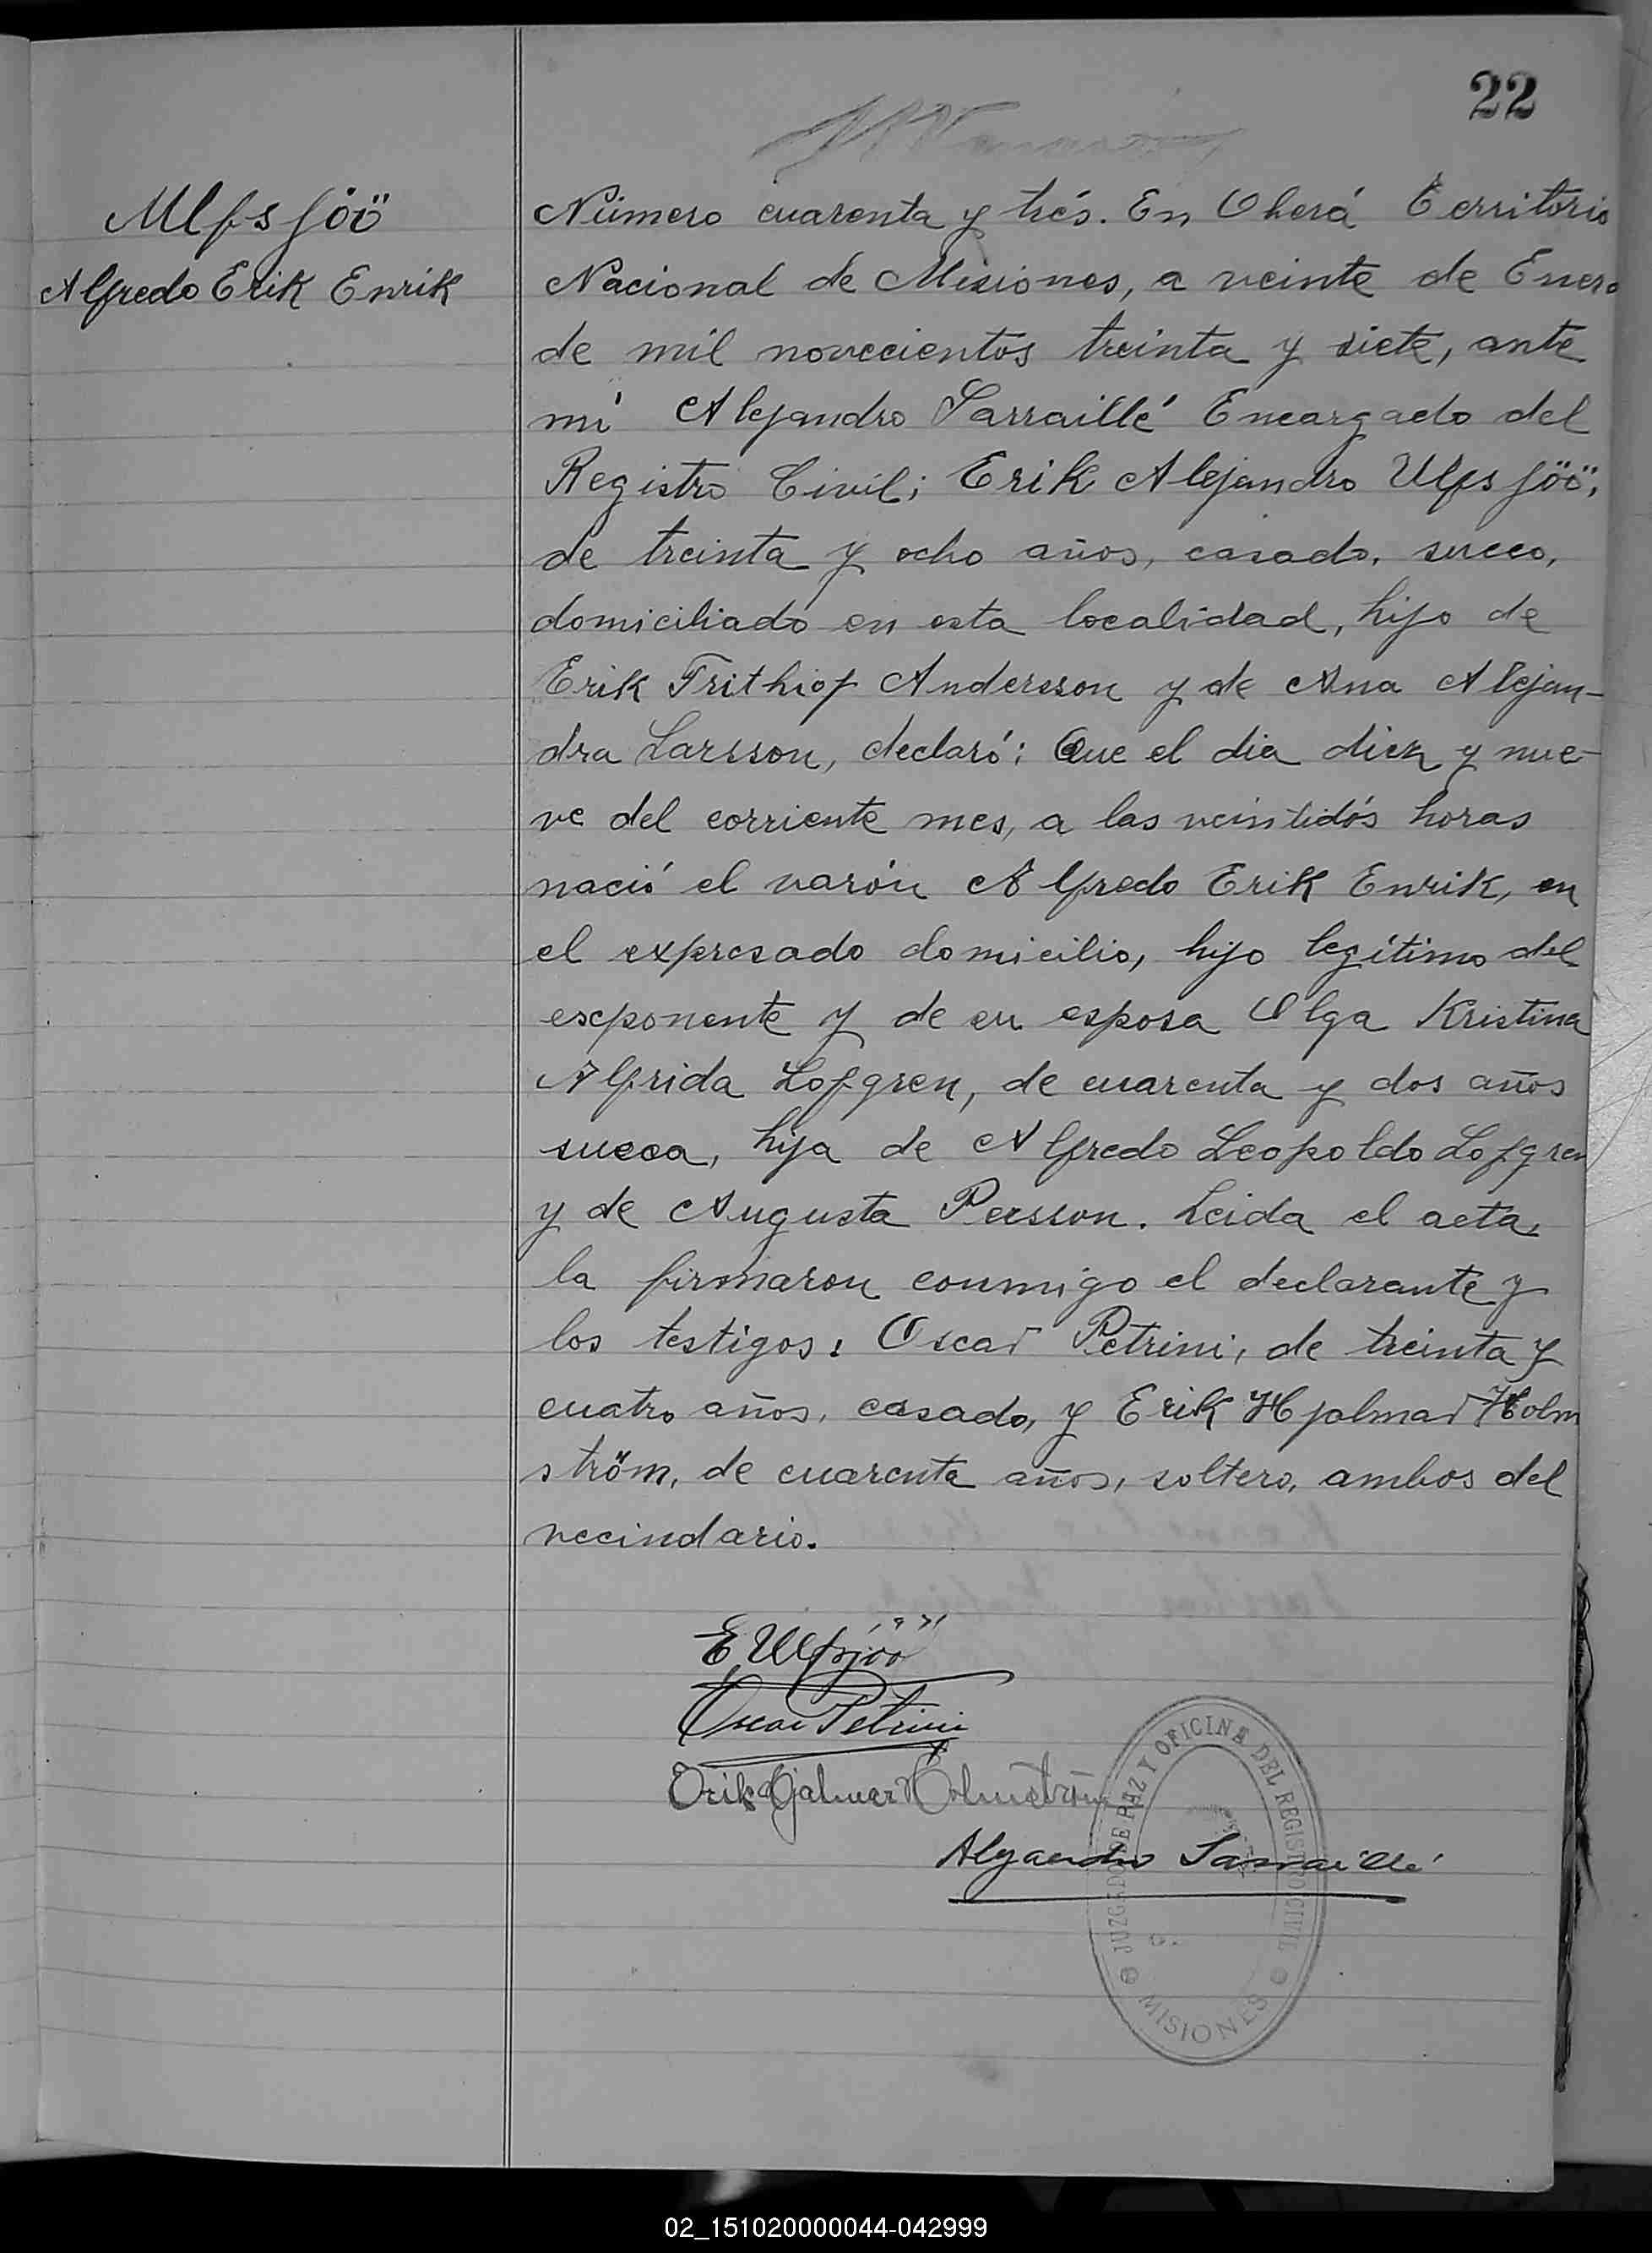 22
Ulfsjöö
Alfredo Erik Enrik
Número cuarenta y trés. En Oberá Territorio
Nacional de Misiones, a veinte de Enero
de mil novecientos treinta y siete, ante
mí Alejandro Sarraillé Encargado del
Registro Civil; Erik Alejandro Ulfsjöö,
de treinta y ocho años, casado, sueco,
domiciliado en esta localidad, hijo de
Erik Frithiof Andersson y de Ana Alejan-
dra Larsson, declaró: Que el dia diez y nue-
ve del corriente mes, a las veintidós horas
nació el varón Alfredo Erik Enrik, en
el expresado domicilio, hijo legítimo del
exponente y de su esposa Olga Kristina
Alfrida Lofgren, de cuarenta y dos años
sueca, hija de Alfredo Leopoldo Lofgren
y de Augusta Persson. Leida el acta,
la firmaron conmigo el declarante y
los testigos: Oscar Petrini, de treinta y
cuatro años, casado, y Erik Hjalmar Holm
ström, de cuarenta años, soltero, ambos del
vecindario.
E Ulfsjöö
Oscar Petrini
Erik Hjalmar Holmström
Alejandro Sarraillé
JUZGADO DE PAZ Y OFICINA DEL REGISTRO CIVIL
MISIONES
02_151020000044-042999